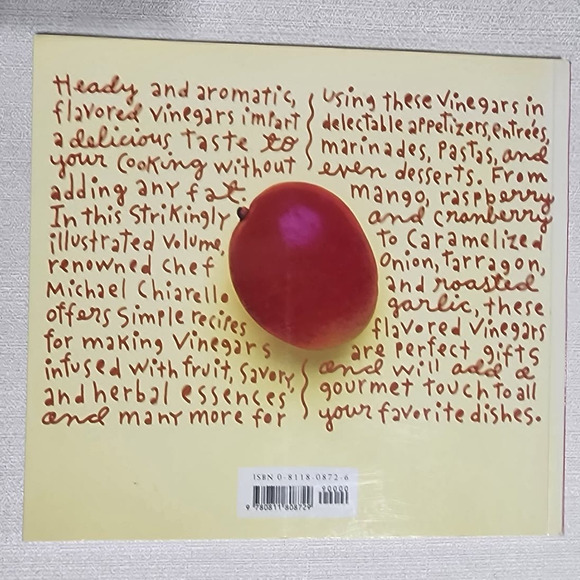 Heady and aromatic,
flavored vinegars impart
a delicious taste to
your cooking without
adding any fat.
In this strikingly
illustrated volume,
renowned chef
Michael Chiarello
offers simple recipes
for making vinegars
infused with fruit, savory,
and herbal essences
and many more for
using these vinegars in
delectable appetizers, entrées,
marinades, pastas, and
even desserts. From
mango, raspberry
and cranberry
to caramelized
onion, tarragon,
and roasted
garlic, these
flavored vinegars
are perfect gifts
and will add a
gourmet touch to all
your favorite dishes.
ISBN 0-8118-0872-6
90000
9 780811 808729